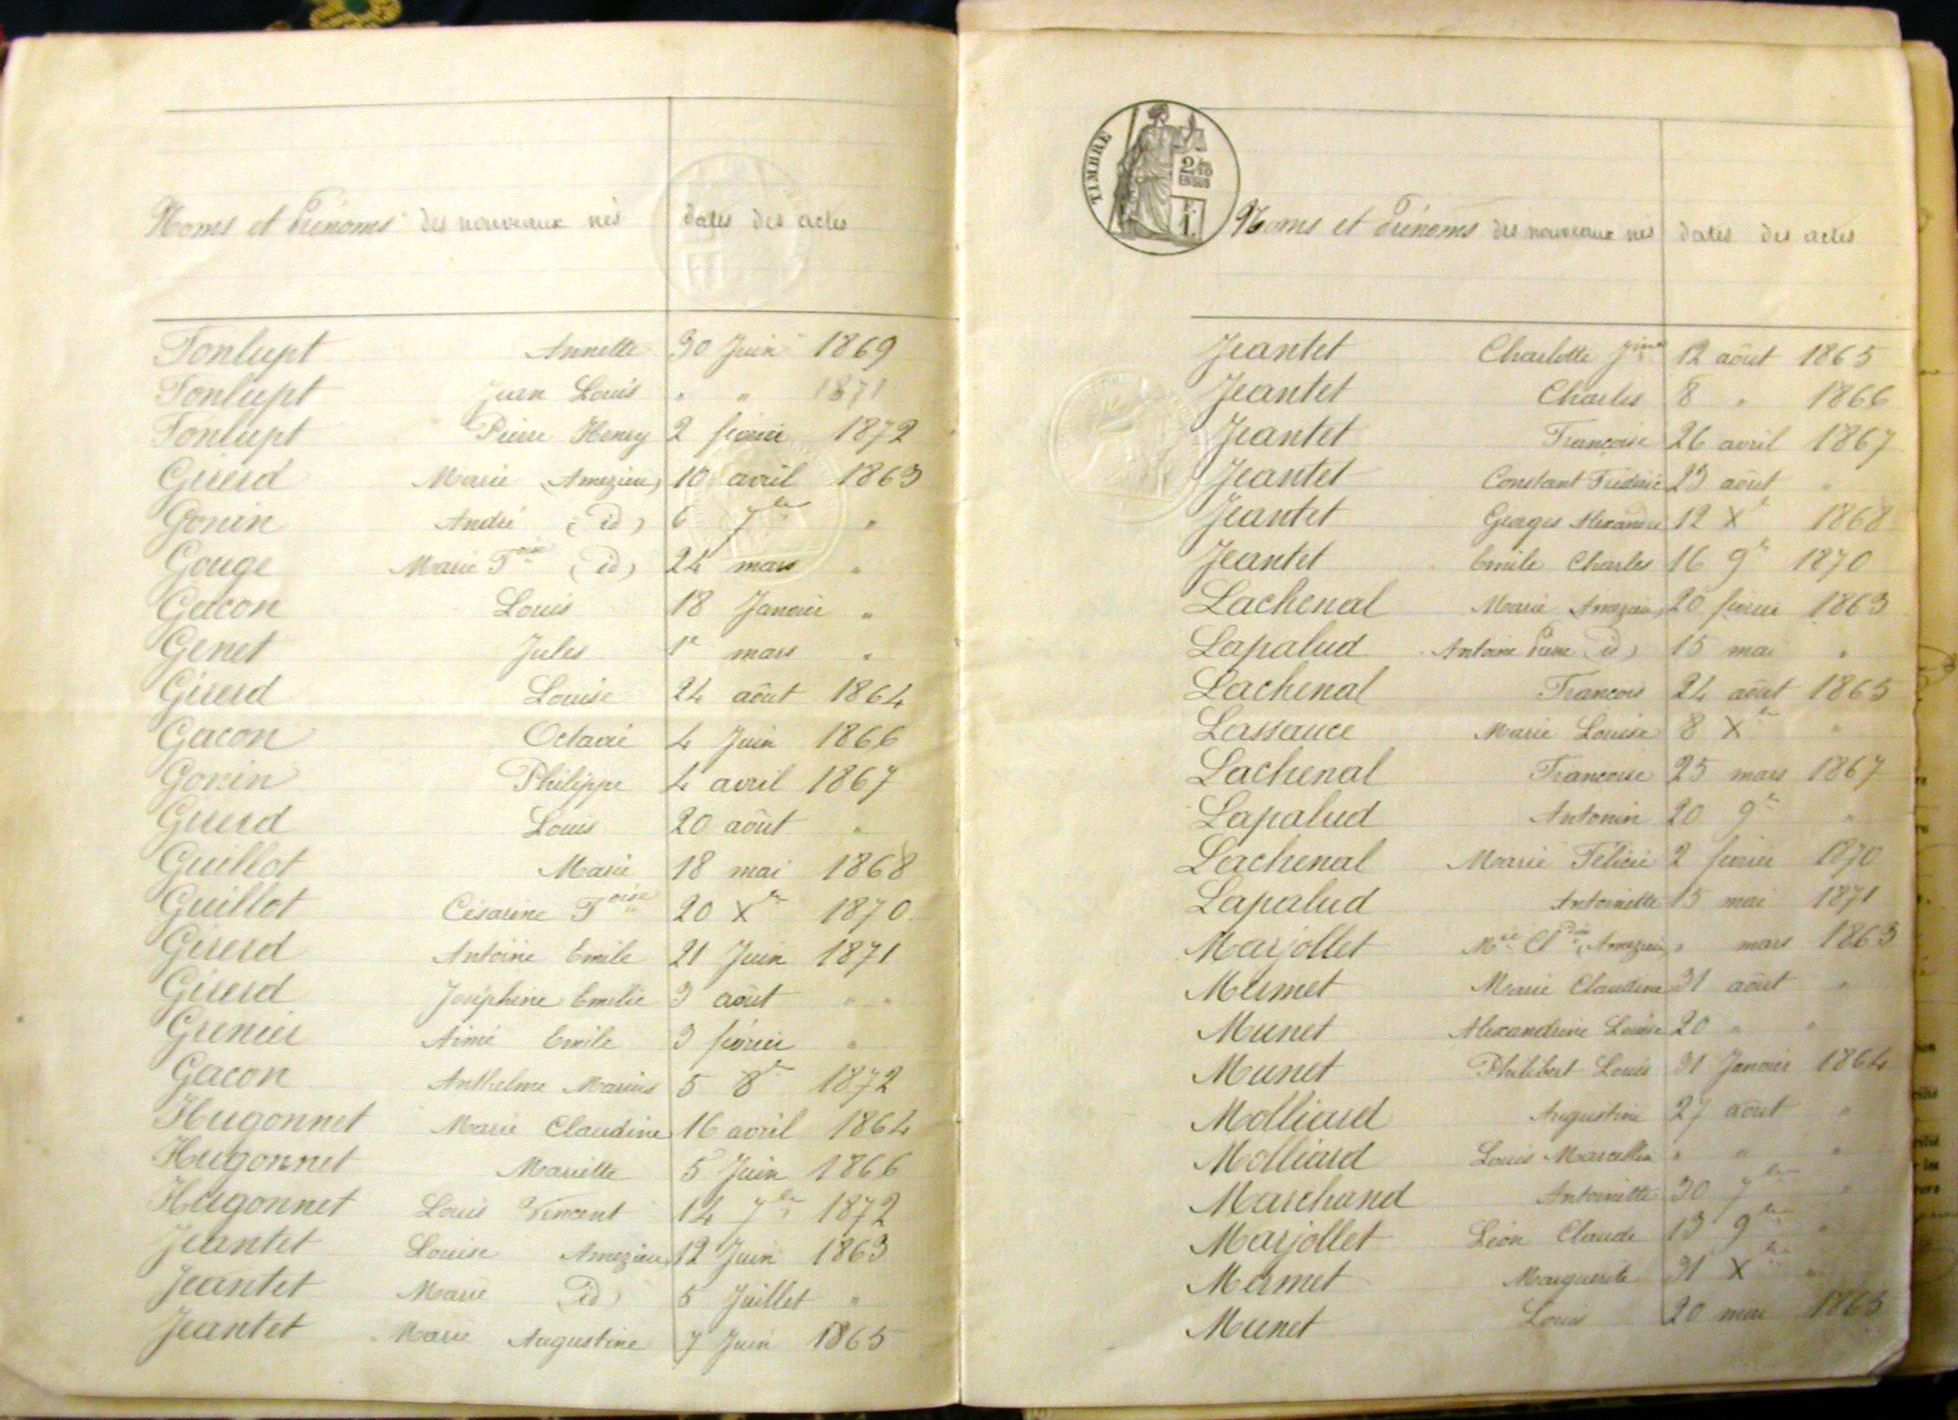 Noms et Prénoms des nouveaux nés dates des actes
Fonlupt Annette 30 Juin 1869
Fonlupt Jean Louis " " 1871
Fonlupt Pierre Henry 2 février 1872
Girerd Marie (Amezieu) 10 avril 1863
Gonin André (id) 6 7bre "
Gouge Marie Foise (id) 24 mars "
Gacon Louis 18 Janvier "
Genet Jules 1er mars "
Girerd Louise 24 août 1864
Gacon Octavie 4 Juin 1866
Gonin Philippe 4 avril 1867
Girerd Louis 20 août "
Guillot Marie 18 mai 1868
Guillot Césarine Foise 20 Xbre 1870
Girerd Antoine Emile 21 Juin 1871
Girerd Joséphine Emilie 3 août " "
Grenier Aimé Emile 3 février "
Gacon Anthelme Marius 5 8bre 1872
Hugonnet Marie Claudine 16 avril 1864
Hugonnet Mariette 5 Juin 1866
Hugonnet Louis Vincent 14 7bre 1872
Jeantet Louise Amezieu 12 Juin 1863
Jeantet Marie (id) 5 Juillet "
Jeantet Marie Augustine 7 Juin 1865
TIMBRE
2/10
EN SUS
F.
1.
Noms et Prénoms des nouveaux nés dates des actes
Jeantet Charlotte 12 août 1865
Jeantet Charles 8 " 1866
Jeantet Françoise 26 avril 1867
Jeantet Constant Frédéric 23 août "
Jeantet Georges Alexandre 12 Xbre 1868
Jeantet Emile Charles 16 9bre 1870
Lachenal Marie (Amezieu) 20 février 1863
Lapalud Antoine Pierre (id) 15 mai "
Lachenal François 24 août 1865
Lassauce Marie Louise 8 Xbre "
Lachenal Françoise 25 mars 1867
Lapalud Antonin 20 9bre "
Lachenal Marie Félicie 2 février 1870
Lapalud Antoinette 15 mai 1871
Marjollet Mie Cldine (Amezieu) " mars 1863
Mermet Marie Claudine 31 août "
Munet Alexandrine Louise 20 " "
Munet Philibert Louis 31 Janvier 1864
Molliard Augustine 27 août "
Molliard Louis Marcellin " " "
Marchand Antoinette 30 7bre "
Marjollet Léon Claude 13 9bre "
Mermet Marguerite 31 Xbre "
Munet Louis 20 mai 1865